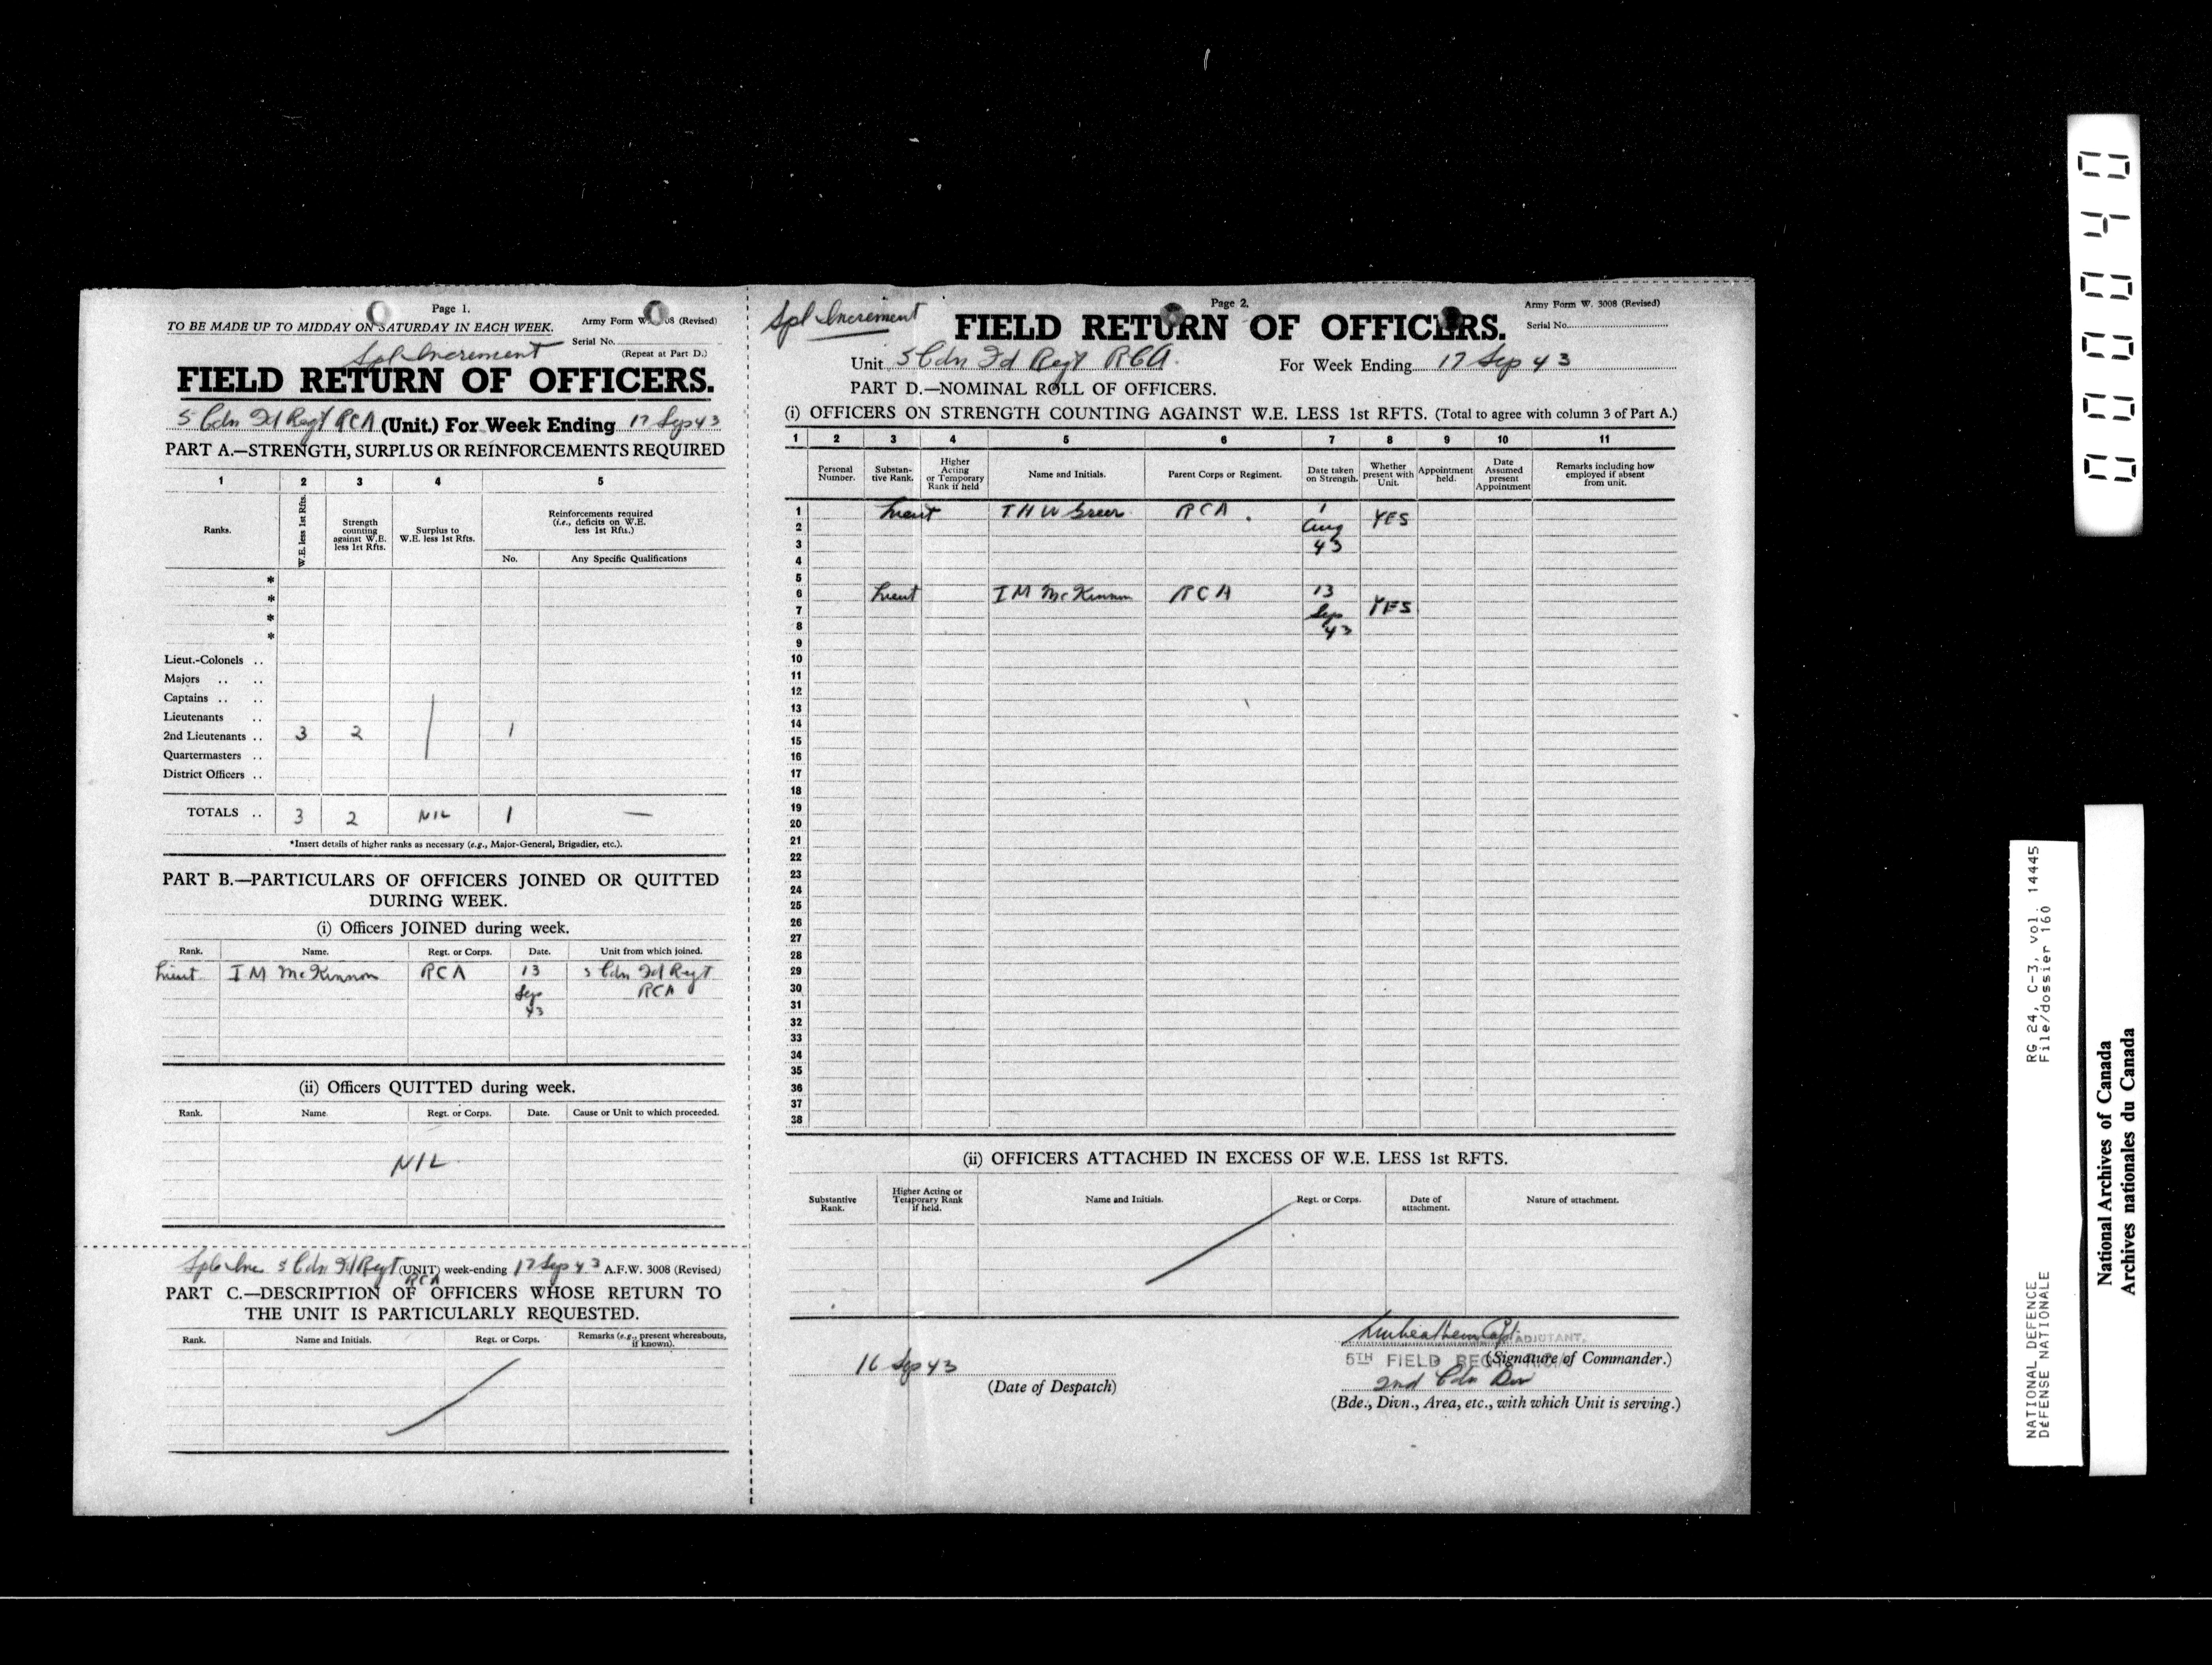 Page 1.
TO BE MADE UP TO MIDDAY ON SATURDAY IN EACH WEEK.
Army Form W. 08 (Revised)
Serial No.
(Repeat at Part D.)
Spl Increment
FIELD RETURN OF OFFICERS.
5 Cdn Fd Regt RCA (Unit.) For Week Ending 17 Sep 43
PART A.—STRENGTH, SURPLUS OR REINFORCEMENTS REQUIRED
1 2 3 4 5
Ranks.
W.E. less 1st Rfts.
Strength counting against W.E. less 1st Rfts.
Surplus to W.E. less 1st Rfts.
Reinforcements required (i.e., deficits on W.E. less 1st Rfts.)
No.
Any Specific Qualifications
*
*
*
*
Lieut.-Colonels ..
Majors .. ..
Captains .. ..
Lieutenants ..
2nd Lieutenants .. 3 2 1
Quartermasters ..
District Officers ..
TOTALS .. 3 2 NIL 1 —
*Insert details of higher ranks as necessary (e.g., Major-General, Brigadier, etc.).
PART B.—PARTICULARS OF OFFICERS JOINED OR QUITTED
DURING WEEK.
(i) Officers JOINED during week.
Rank. Name. Regt. or Corps. Date. Unit from which joined.
Lieut I M McKinnon RCA 13 5 Cdn Fd Regt
Sep RCA
43
(ii) Officers QUITTED during week.
Rank. Name. Regt. or Corps. Date. Cause or Unit to which proceeded.
NIL
5 Cdn Fd Regt (UNIT) week-ending 17 Sep 43 A.F.W. 3008 (Revised)
RCA
PART C.—DESCRIPTION OF OFFICERS WHOSE RETURN TO
THE UNIT IS PARTICULARLY REQUESTED.
Rank. Name and Initials. Regt. or Corps. Remarks (e.g., present whereabouts, if known).
Spl Increment
Page 2.
Army Form W. 3008 (Revised)
Serial No.
FIELD RETURN OF OFFICERS.
Unit 5 Cdn Fd Regt RCA For Week Ending 17 Sep 43
PART D.—NOMINAL ROLL OF OFFICERS.
(i) OFFICERS ON STRENGTH COUNTING AGAINST W.E. LESS 1st RFTS. (Total to agree with column 3 of Part A.)
1 2 3 4 5 6 7 8 9 10 11
Personal Number.
Substantive Rank.
Higher Acting or Temporary Rank if held
Name and Initials.
Parent Corps or Regiment.
Date taken on Strength.
Whether present with Unit.
Appointment held.
Date Assumed present Appointment
Remarks including how employed if absent from unit.
1 Lieut T H W Greer RCA 1
2 Aug YES
3 43
4
5
6 Lieut I M McKinnon RCA 13
7 Sep YES
8 43
9
10
11
12
13
14
15
16
17
18
19
20
21
22
23
24
25
26
27
28
29
30
31
32
33
34
35
36
37
38
(ii) OFFICERS ATTACHED IN EXCESS OF W.E. LESS 1st RFTS.
Substantive Rank.
Higher Acting or Temporary Rank if held.
Name and Initials.
Regt. or Corps.
Date of attachment.
Nature of attachment.
Capt ADJUTANT.
5TH FIELD REGT.
(Signature of Commander.)
16 Sep 43
(Date of Despatch)
2nd Cdn Div
(Bde., Divn., Area, etc., with which Unit is serving.)
00040
NATIONAL DEFENCE
DÉFENSE NATIONALE
RG 24, C-3, vol. 14445
File/dossier 160
National Archives of Canada
Archives nationales du Canada